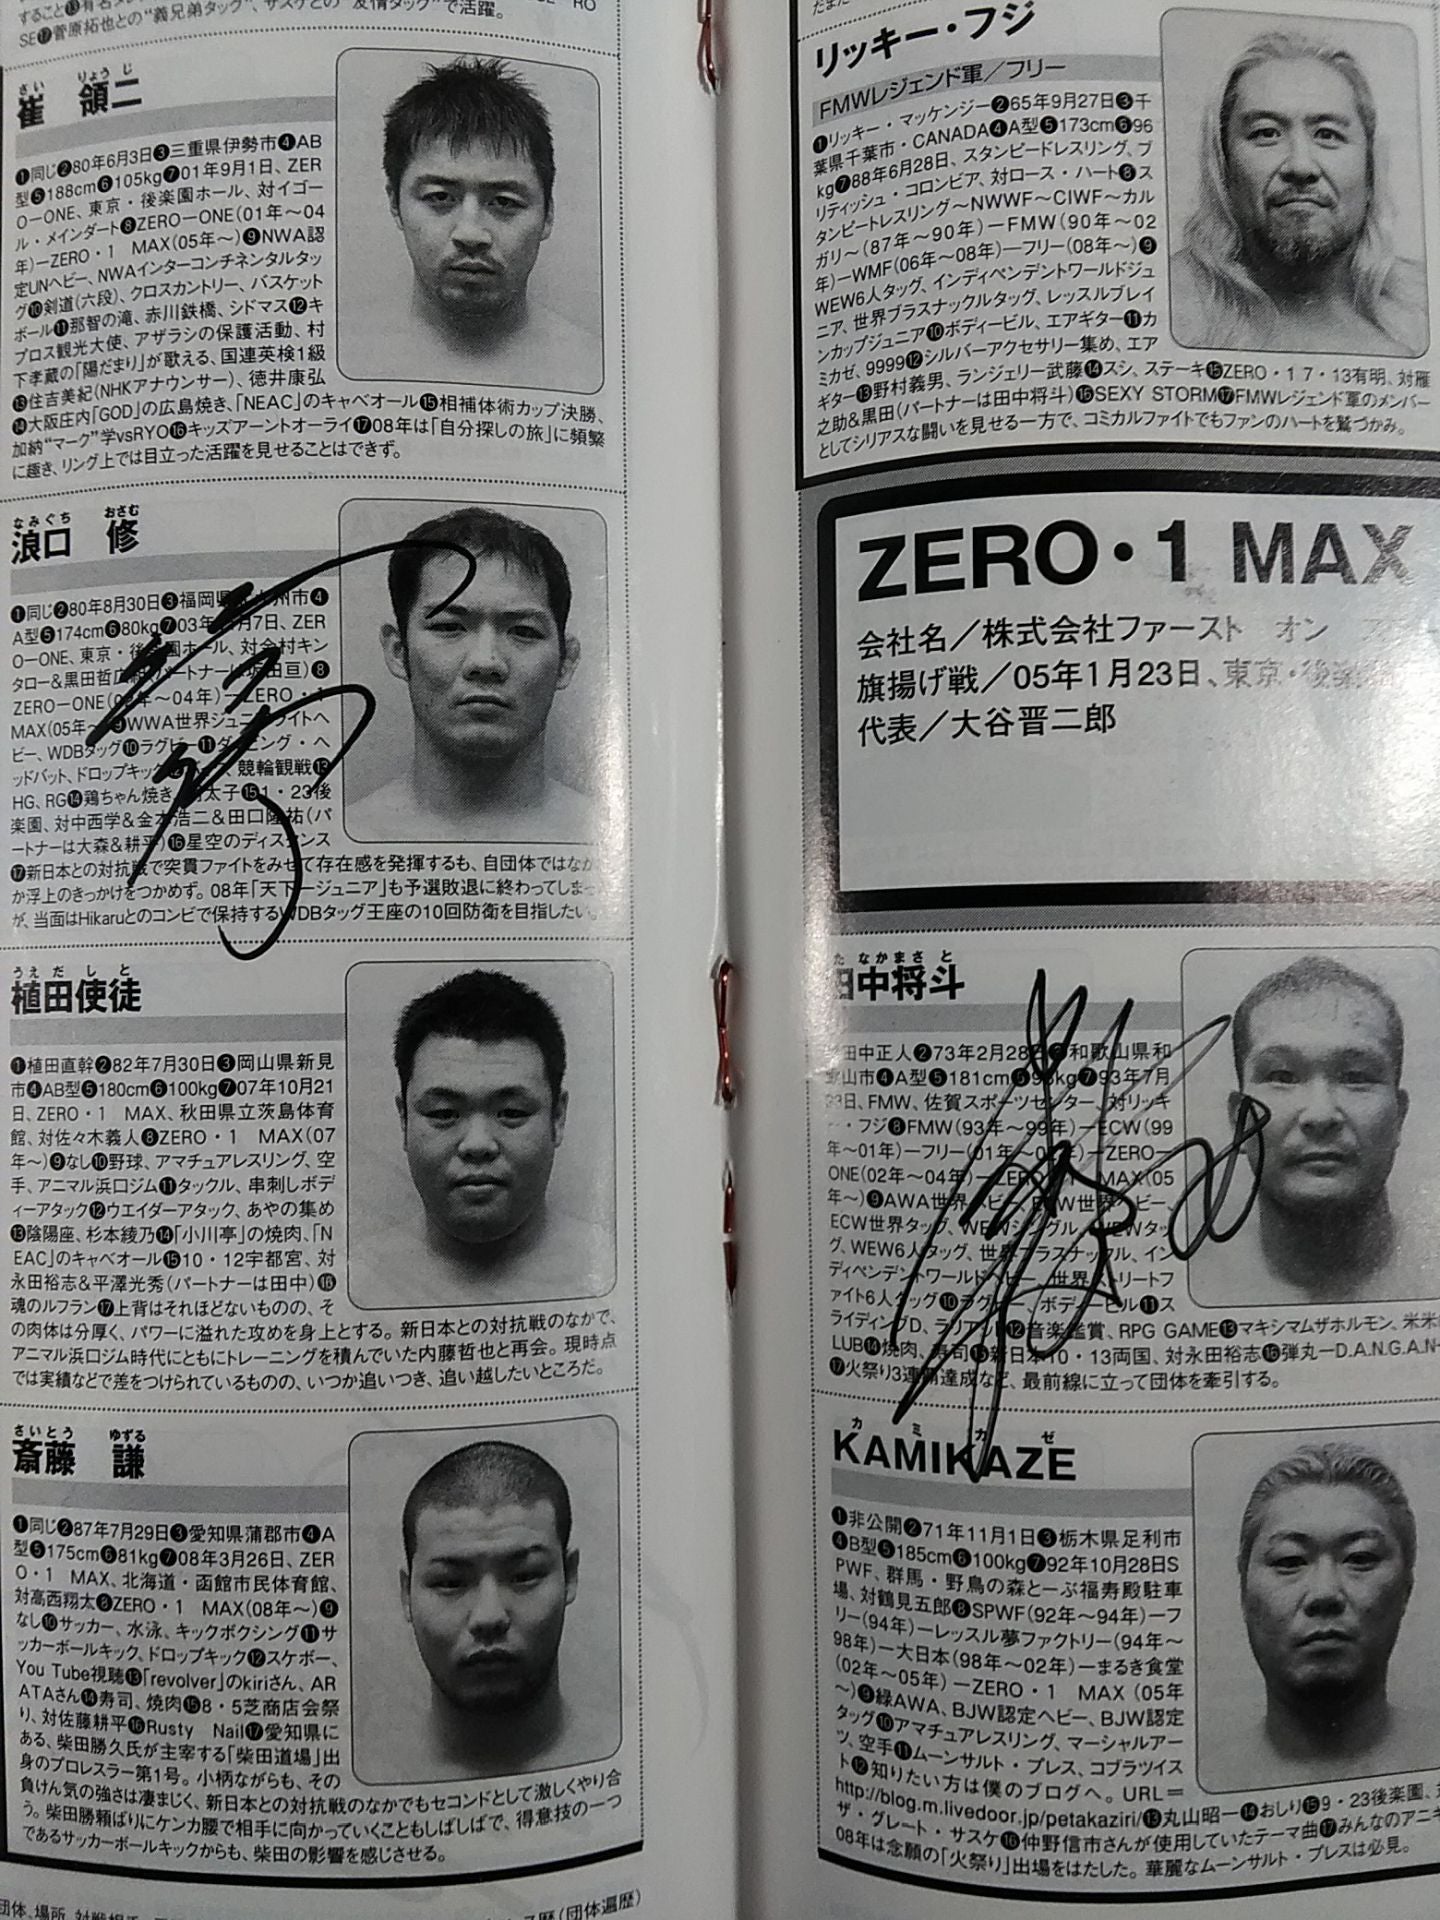 SE⓱菅原拓也との“義兄弟タッグ”、サスケとの“友情タッグ”で活躍。
さい りょうじ
崔 領二
❶同じ❷80年6月3日❸三重県伊勢市❹AB
型❺188cm❻105kg❼01年9月1日、ZER
O-ONE、東京・後楽園ホール、対イゴー
ル・メインダート❽ZERO-ONE(01年〜04
年)ーZERO・1 MAX(05年〜)❾NWA認
定UNヘビー、NWAインターコンチネンタルタッ
グ❿剣道(六段)、クロスカントリー、バスケット
ボール⓫那智の滝、赤川鉄橋、シドマス⓬キ
プロス観光大使、アザラシの保護活動、村
下孝蔵の「陽だまり」が歌える、国連英検1級
⓭住吉美紀(NHKアナウンサー)、徳井康弘
⓮大阪庄内「GOD」の広島焼き、「NEAC」のキャベオール⓯相補体術カップ決勝、
加納“マーク”学vsRYO⓰キッズアーントオーライ⓱08年は「自分探しの旅」に頻繁
に趣き、リング上では目立った活躍を見せることはできず。
なみぐち おさむ
浪口 修
❶同じ❷80年8月30日❸福岡県 州市❹
A型❺174cm❻80kg❼03年 7日、ZER
O-ONE、東京・後楽園ホール、対金村キン
タロー&黒田哲広組(パートナーは坂田亘)❽
ZERO-ONE(03年〜04年)ーZERO・1
MAX(05年〜)❾WWA世界ジュニアライトヘ
ビー、WDBタッグ❿ラグビー⓫ダイビング・ヘ
ッドバット、ドロップキック 、競輪観戦⓭
HG、RG⓮鶏ちゃん焼き、明太子⓯1・23後
楽園、対中西学&金本浩二&田口隆祐(パ
ートナーは大森&耕平)⓰星空のディスタンス
⓱新日本との対抗戦で突貫ファイトをみせて存在感を発揮するも、自団体ではなか
か浮上のきっかけをつかめず。08年「天下一ジュニア」も予選敗退に終わってしまっ
が、当面はHikaruとのコンビで保持するWDBタッグ王座の10回防衛を目指したい。
うえだしと
植田使徒
❶植田直幹❷82年7月30日❸岡山県新見
市❹AB型❺180cm❻100kg❼07年10月21
日、ZERO・1 MAX、秋田県立茨島体育
館、対佐々木義人❽ZERO・1 MAX(07
年〜)❾なし❿野球、アマチュアレスリング、空
手、アニマル浜口ジム⓫タックル、串刺しボデ
ィーアタック⓬ウエイダーアタック、あやの集め
⓭陰陽座、杉本綾乃⓮「小川亭」の焼肉、「N
EAC」のキャベオール⓯10・12宇都宮、対
永田裕志&平澤光秀(パートナーは田中)⓰
魂のルフラン⓱上背はそれほどないものの、そ
の肉体は分厚く、パワーに溢れた攻めを身上とする。新日本との対抗戦のなかで、
アニマル浜口ジム時代にともにトレーニングを積んでいた内藤哲也と再会。現時点
では実績などで差をつけられているものの、いつか追いつき、追い越したいところだ。
さいとう ゆずる
斎藤 謙
❶同じ❷87年7月29日❸愛知県蒲郡市❹A
型❺175cm❻81kg❼08年3月26日、ZER
O・1 MAX、北海道・函館市民体育館、
対高西翔太❽ZERO・1 MAX(08年〜)❾
なし❿サッカー、水泳、キックボクシング⓫サ
ッカーボールキック、ドロップキック⓬スケボー、
You Tube視聴⓭「revolver」のkiriさん、AR
ATAさん⓮寿司、焼肉⓯8・5芝商店会祭
り、対佐藤耕平⓰Rusty Nail⓱愛知県に
ある、柴田勝久氏が主宰する「柴田道場」出
身のプロレスラー第1号。小柄ながらも、その
負けん気の強さは凄まじく、新日本との対抗戦のなかでもセコンドとして激しくやり合
う。柴田勝頼ばりにケンカ腰で相手に向かっていくこともしばしばで、得意技の一つ
であるサッカーボールキックからも、柴田の影響を感じさせる。
団体、場所、対戦相手
歴(団体遍歴)
リッキー・フジ
FMWレジェンド軍／フリー
❶リッキー・マッケンジー❷65年9月27日❸千
葉県千葉市・CANADA❹A型❺173cm❻96
kg❼88年6月28日、スタンピードレスリング、ブ
リティッシュ・コロンビア、対ロース・ハート❽ス
タンピートレスリング〜NWWF〜CIWF〜カル
ガリ〜(87年〜90年)ーFMW(90年〜02
年)ーWMF(06年〜08年)ーフリー(08年〜)❾
WEW6人タッグ、インディペンデントワールドジュ
ニア、世界ブラスナックルタッグ、レッスルブレイ
ンカップジュニア❿ボディービル、エアギター⓫カ
ミカゼ、9999⓬シルバーアクセサリー集め、エア
ギター⓭野村義男、ランジェリー武藤⓮スシ、ステーキ⓯ZERO・1 7・13有明、対雁
之助&黒田(パートナーは田中将斗)⓰SEXY STORM⓱FMWレジェンド軍のメンバー
としてシリアスな闘いを見せる一方で、コミカルファイトでもファンのハートを鷲づかみ。
ZERO・1 MAX
会社名／株式会社ファースト オン
旗揚げ戦／05年1月23日、東京・後楽園
代表／大谷晋二郎
たなかまさと
田中将斗
❶田中正人❷73年2月28日❸和歌山県和
歌山市❹A型❺181cm❻93kg❼93年7月
23日、FMW、佐賀スポーツセンター、対リッキ
ー・フジ❽FMW(93年〜99年)ーECW(99
年〜01年)ーフリー(01年〜02年)ーZERO-
ONE(02年〜04年)ーZERO・1 MAX(05
年〜)❾AWA世界ヘビー、ECW世界ヘビー、
ECW世界タッグ、WEWシングル、WEWタッ
グ、WEW6人タッグ、世界ブラスナックル、イン
ディペンデントワールドヘビー、世界ストリートフ
ァイト6人タッグ❿ラグビー、ボディービル⓫ス
ライディングD、ラリアット⓬音楽鑑賞、RPG GAME⓭マキシマムザホルモン、米米
LUB⓮焼肉、寿司⓯新日本10・13両国、対永田裕志⓰弾丸ーD.A.N.G.A.N
⓱火祭り3連覇達成など、最前線に立って団体を牽引する。
カミカゼ
KAMIKAZE
❶非公開❷71年11月1日❸栃木県足利市
❹B型❺185cm❻100kg❼92年10月28日S
PWF、群馬・野鳥の森とーぶ福寿殿駐車
場、対鶴見五郎❽SPWF(92年〜94年)ーフ
リー(94年)ーレッスル夢ファクトリー(94年〜
98年)ー大日本(98年〜02年)ーまるき食堂
(02年〜05年)ーZERO・1 MAX(05年
〜)❾緑AWA、BJW認定ヘビー、BJW認定
タッグ❿アマチュアレスリング、マーシャルアー
ツ、空手⓫ムーンサルト・プレス、コブラツイス
ト⓬知りたい方は僕のブログへ。URL＝
http://blog.m.livedoor.jp/petakaziri/⓭丸山昭一⓮おしり⓯9・23後楽園、
ザ・グレート・サスケ⓰仲野信市さんが使用していたテーマ曲⓱みんなのアニキ
08年は念願の「火祭り」出場をはたした。華麗なムーンサルト・プレスは必見。